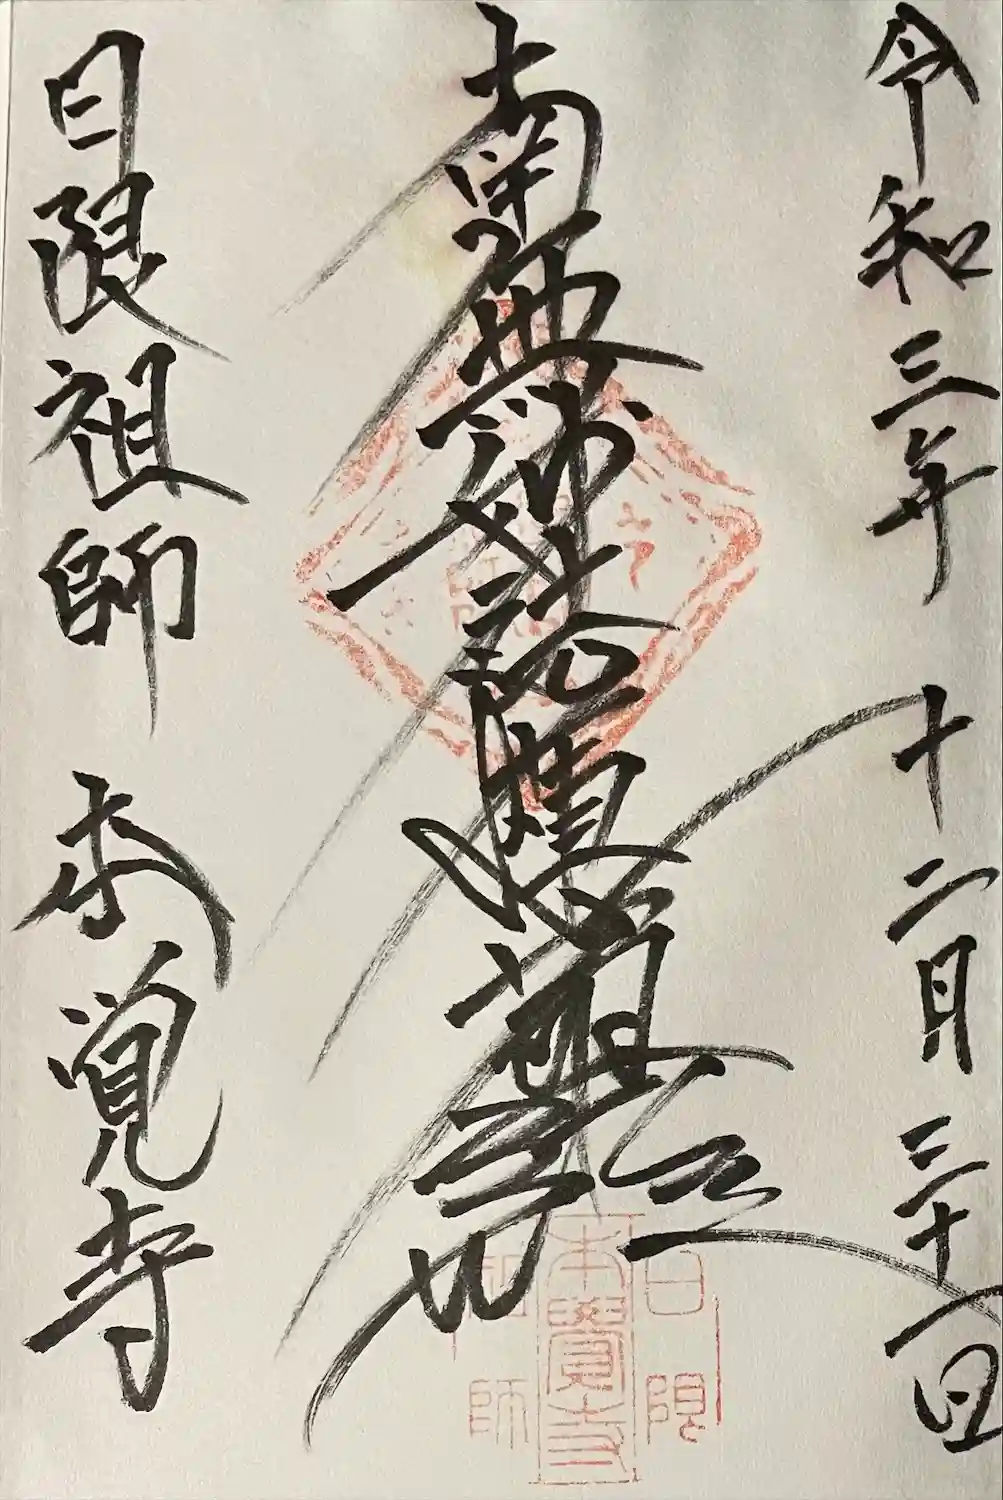 令和三年 十二月 三十一日
南無妙法蓮華経
日限祖師 本覚寺
日限
本覺寺
祖師